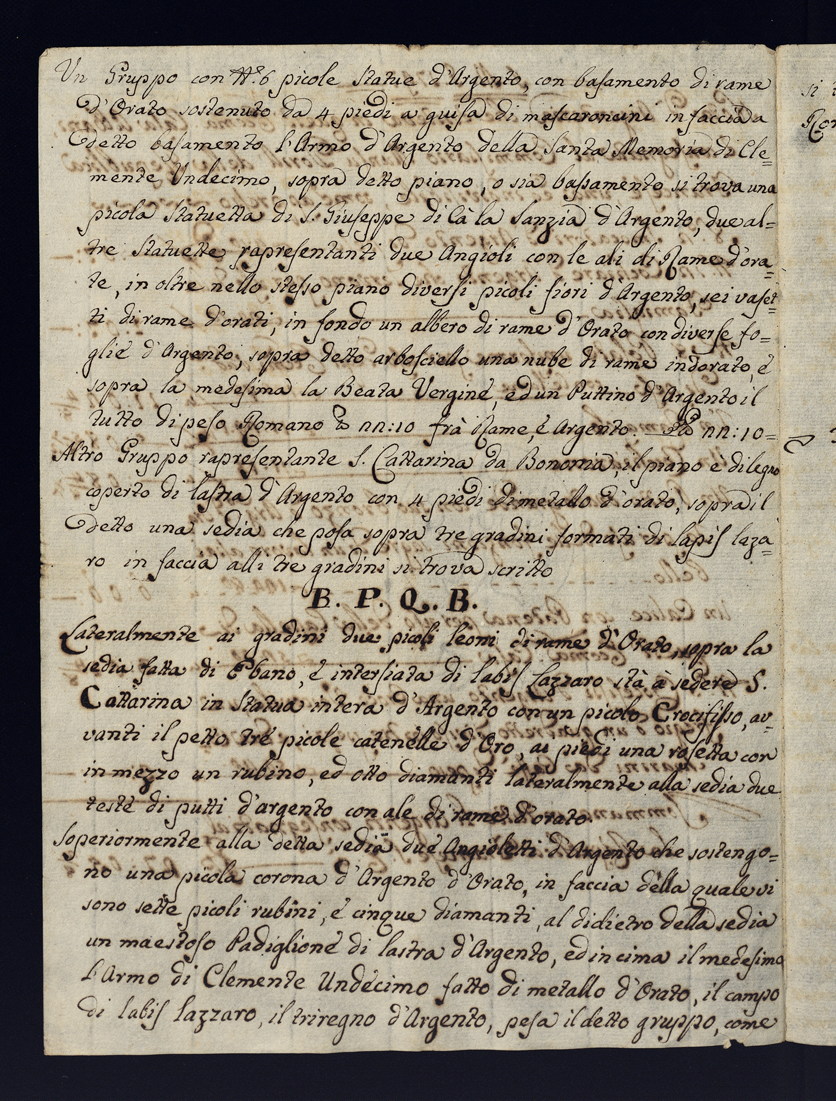 Un Gruppo con N.º 6 picole Statue d'Argento, con basamento di rame
d'Orato sostenuto da 4 piedi a guisa di mascaroncini in faccia a
detto basamento l'Armo d'Argento della Santa Memoria di Cle=
mente Undecimo, sopra detto piano, o sia bassamento si trova una
picola Statuetta di S. Giuseppe di Cà la Sanzia d'Argento, due al=
tre Statuette rapresentanti due Angioli con le ali di Rame d'ora=
te, in oltre nello stesso piano diversi picoli fiori d'Argento, sei vaset=
ti di rame d'orati, in fondo un albero di rame d'Orato con diverse fo=
glie d'Argento, sopra detto arbosciello una nube di rame indorato, è
sopra la medesima la Beata Vergine, ed un Puttino d'Argento il
tutto di peso Romano nn:10 frà Rame, è Argento. nn:10=
Altro Gruppo rapresentante S. Cattarina da Bononia, il piano è di legno
coperto di lastra d'Argento con 4 piedi di metallo d'orato, sopra il
detto una sedia che posa sopra tre gradini formati di lapis laza=
ro in faccia alli tre gradini si trova scritto
B. P. Q. B.
Lateralmente ai gradini due picoli leoni di rame d'Orato, sopra la
sedia fatta di Ebano, è intersiata di labis Lazzaro stà a sedere S.
Cattarina in Statua intera d'Argento con un picolo Crocifisso, av=
vanti il petto tre picole catenelle d'Oro, ai piedi una rosetta con
in mezzo un rubino, ed otto diamanti lateralmente alla sedia due
teste di putti d'argento con ale di rame d'orato.
Soperiormente alla detta sedia due Angioletti d'Argento che sostengo=
no una picola corona d'Argento d'Orato, in faccia della quale vi
sono sette picoli rubini, è cinque diamanti, al didietro della sedia
un maestoso Padiglione di lastra d'Argento, ed in cima il medesimo
l'Armo di Clemente Undecimo fatto di metallo d'Orato, il campo
di labis lazzaro, il triregno d'Argento, pesa il detto gruppo, come
si